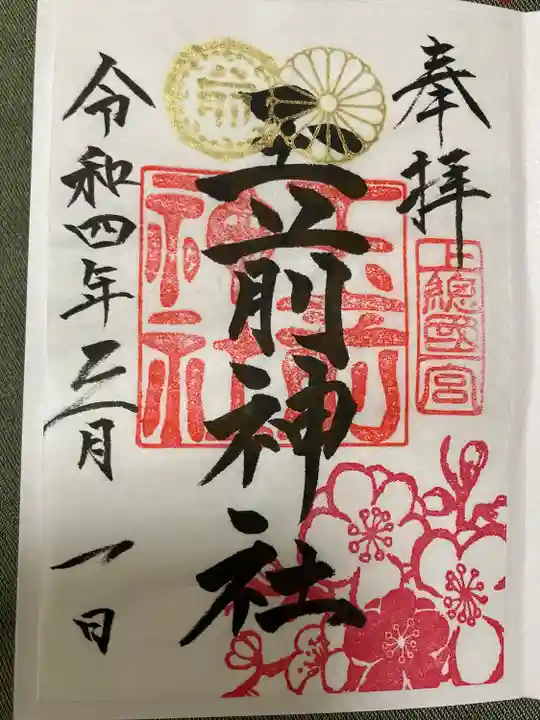 奉拝
上總國一宮
玉前神社
玉前神社
令和四年 月一日